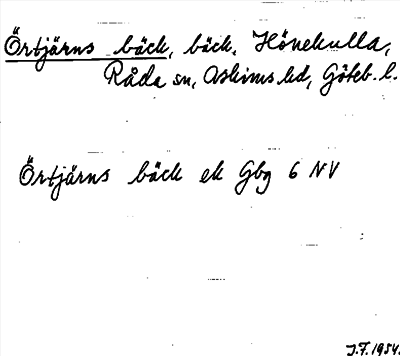 Örtjärns bäck, bäck, Hönekulla,
Råda sn, Askims hd, Göteb. l.
Örtjärns bäck ek Gbg 6 NV
J.F. 1954.